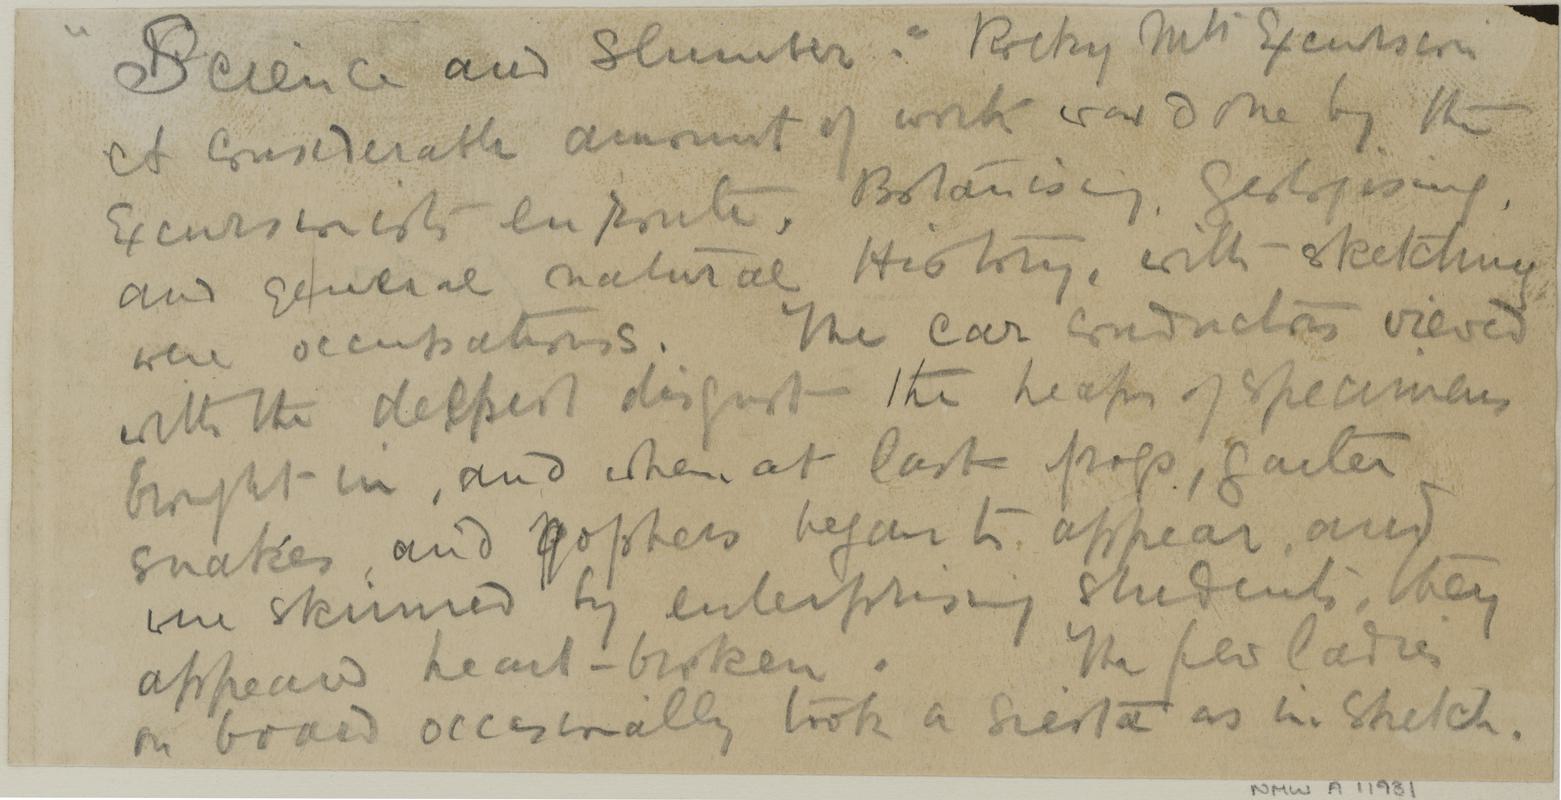 "Science and Slumber." Rocky Mts Excursion
A considerable amount of work was done by the
Excursionists en route. Botanising, geologising,
and general natural History, with sketching
were occupations. The car conductors viewed
with the deepest disgust the heaps of specimens
brought in, and when at last frogs, garter
snakes, and gophers began to appear, and
were skinned by enterprising students, they
appeared heart-broken. The few ladies
on board occasionally took a siesta as in sketch.
NMW A 11931